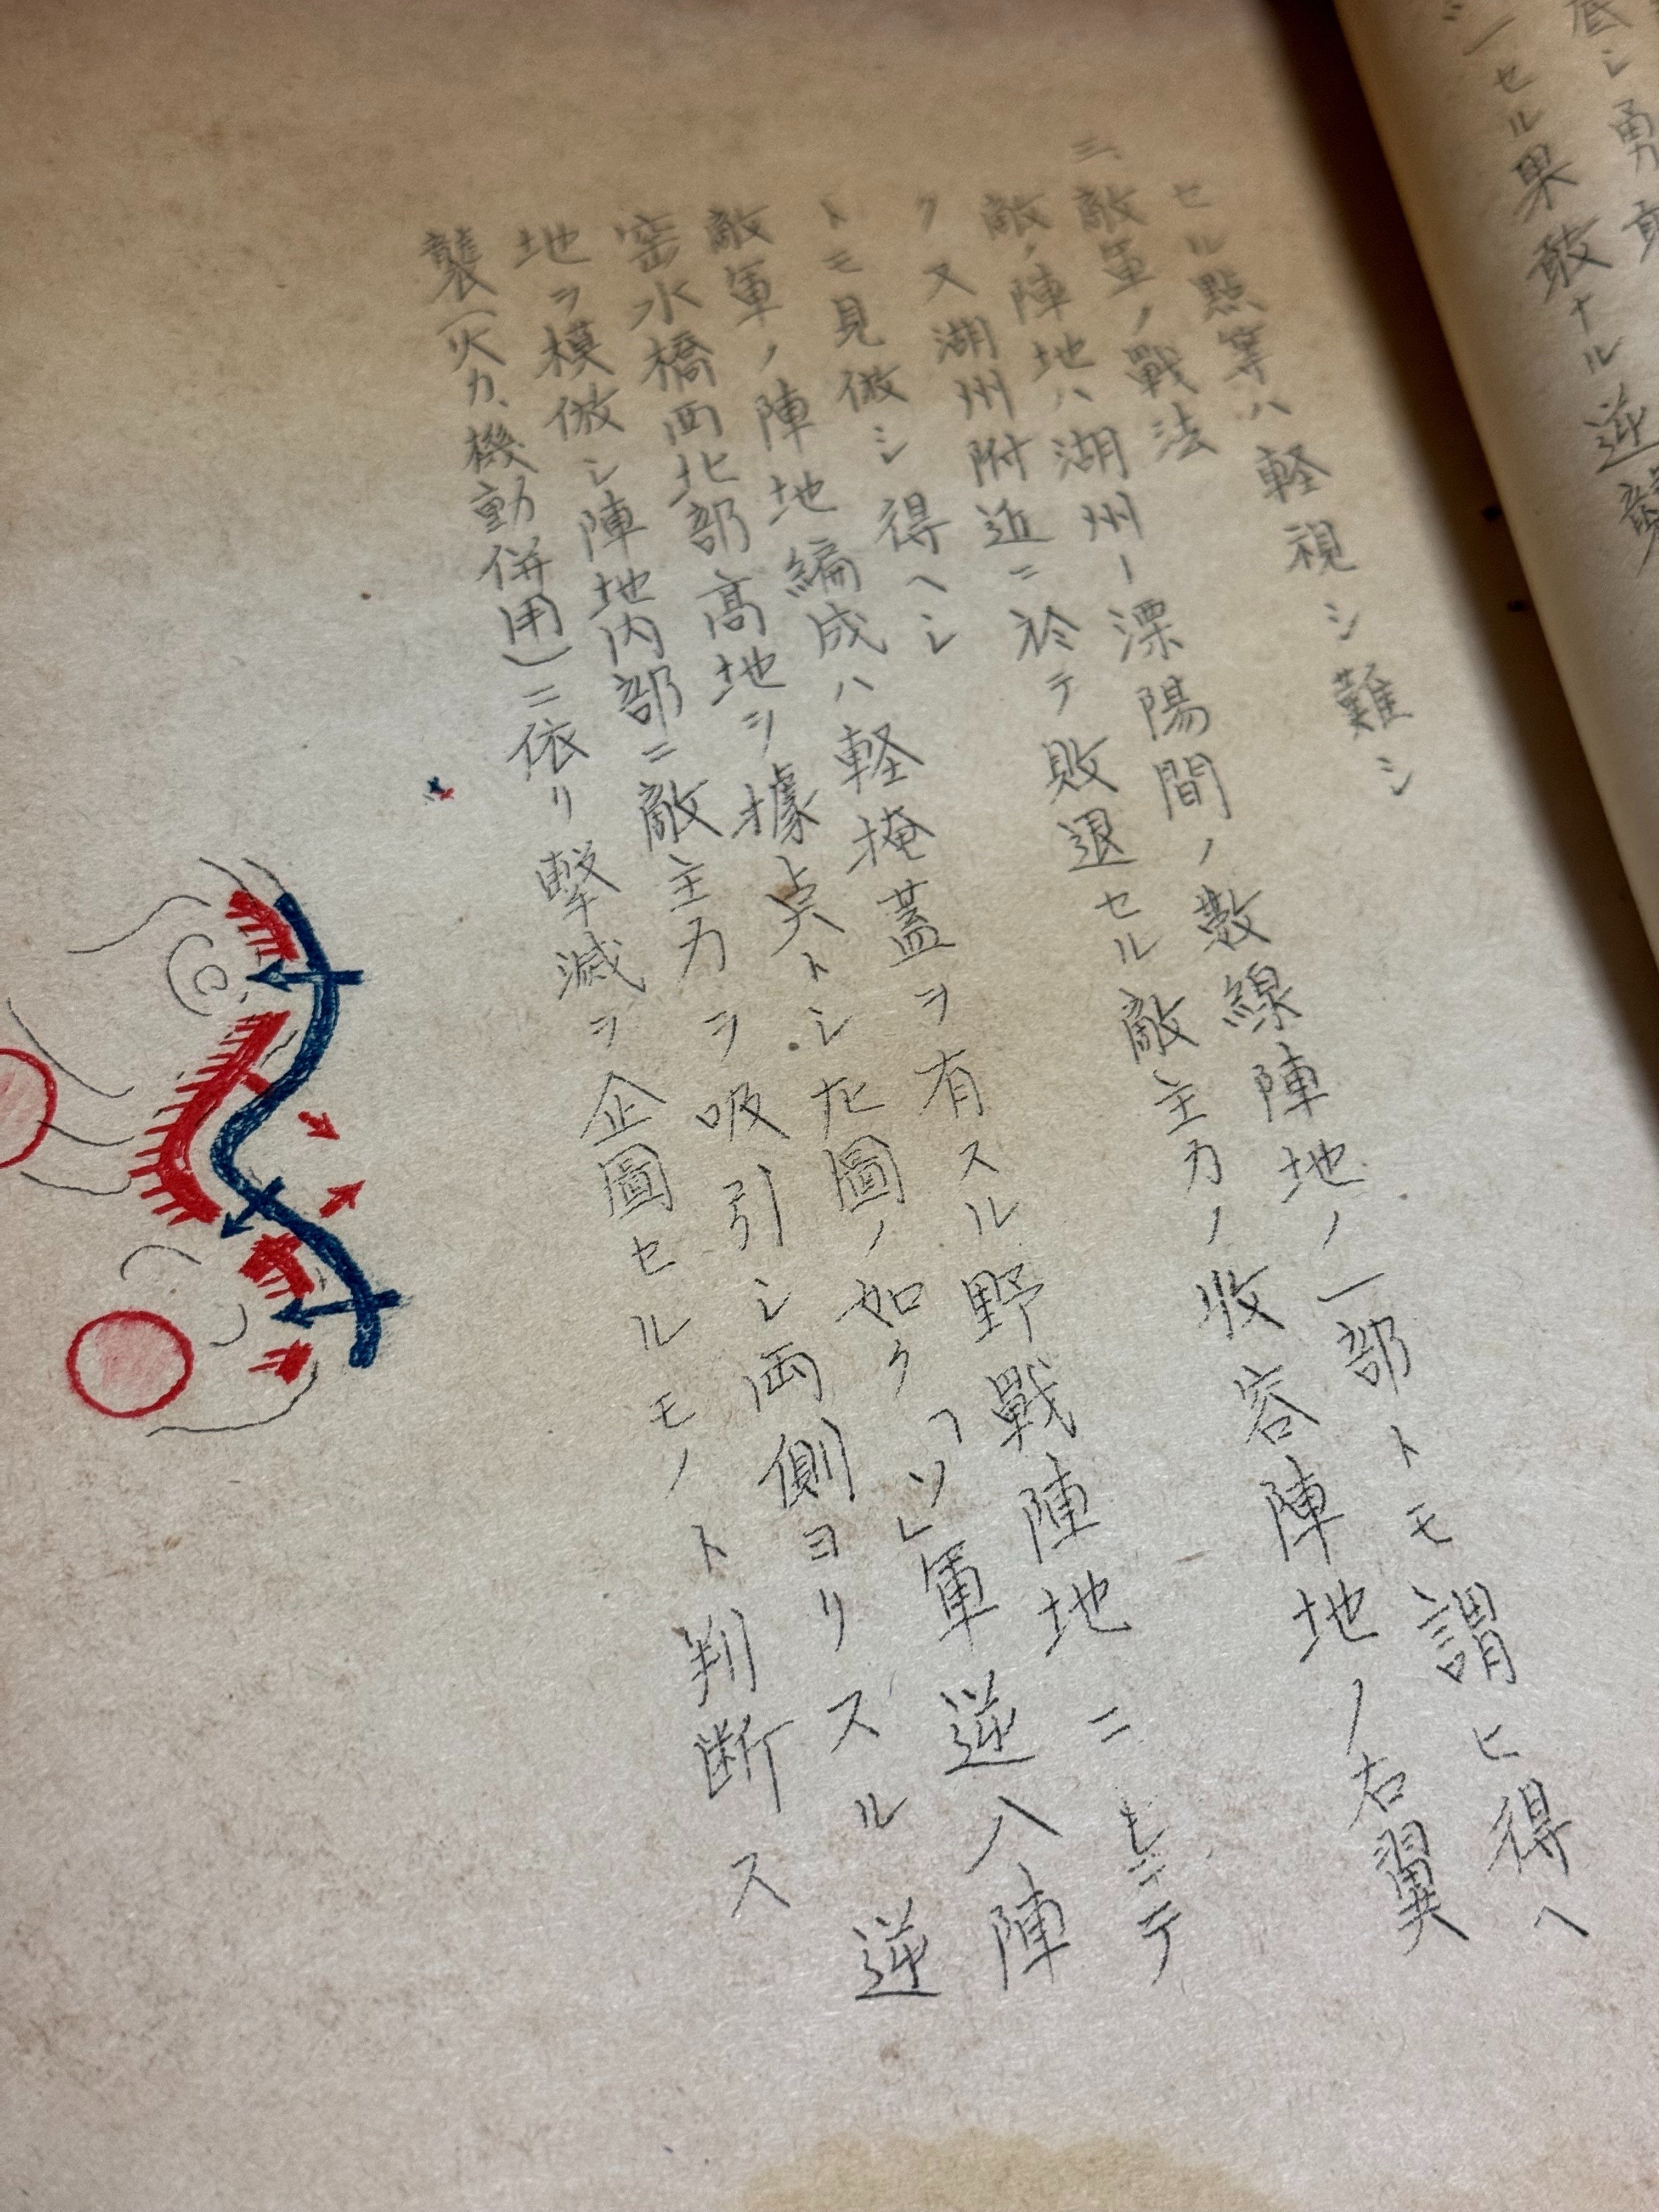 底シ勇
一セル果敢ナル逆襲
セル點等ハ軽視シ難シ
三、敵軍ノ戰法
敵ノ陣地ハ湖州ー漂陽間ノ數線陣地ノ一部トモ謂ヒ得ヘ
ク又湖州附近ニ於テ敗退セル敵主力ノ收容陣地ノ右翼
トモ見做シ得ヘシ
敵軍ノ陣地編成ハ軽掩蓋ヲ有スル野戰陣地ニシテ
窑水橋西北部高地ヲ據点トシ左圖ノ如クソレ軍逆八陣
地ヲ模倣シ陣地内部ニ敵主力ヲ吸引シ両側ヨリスル逆
襲(火力、機動併用)ニ依リ撃滅ヲ企圖セルモノト判断ス